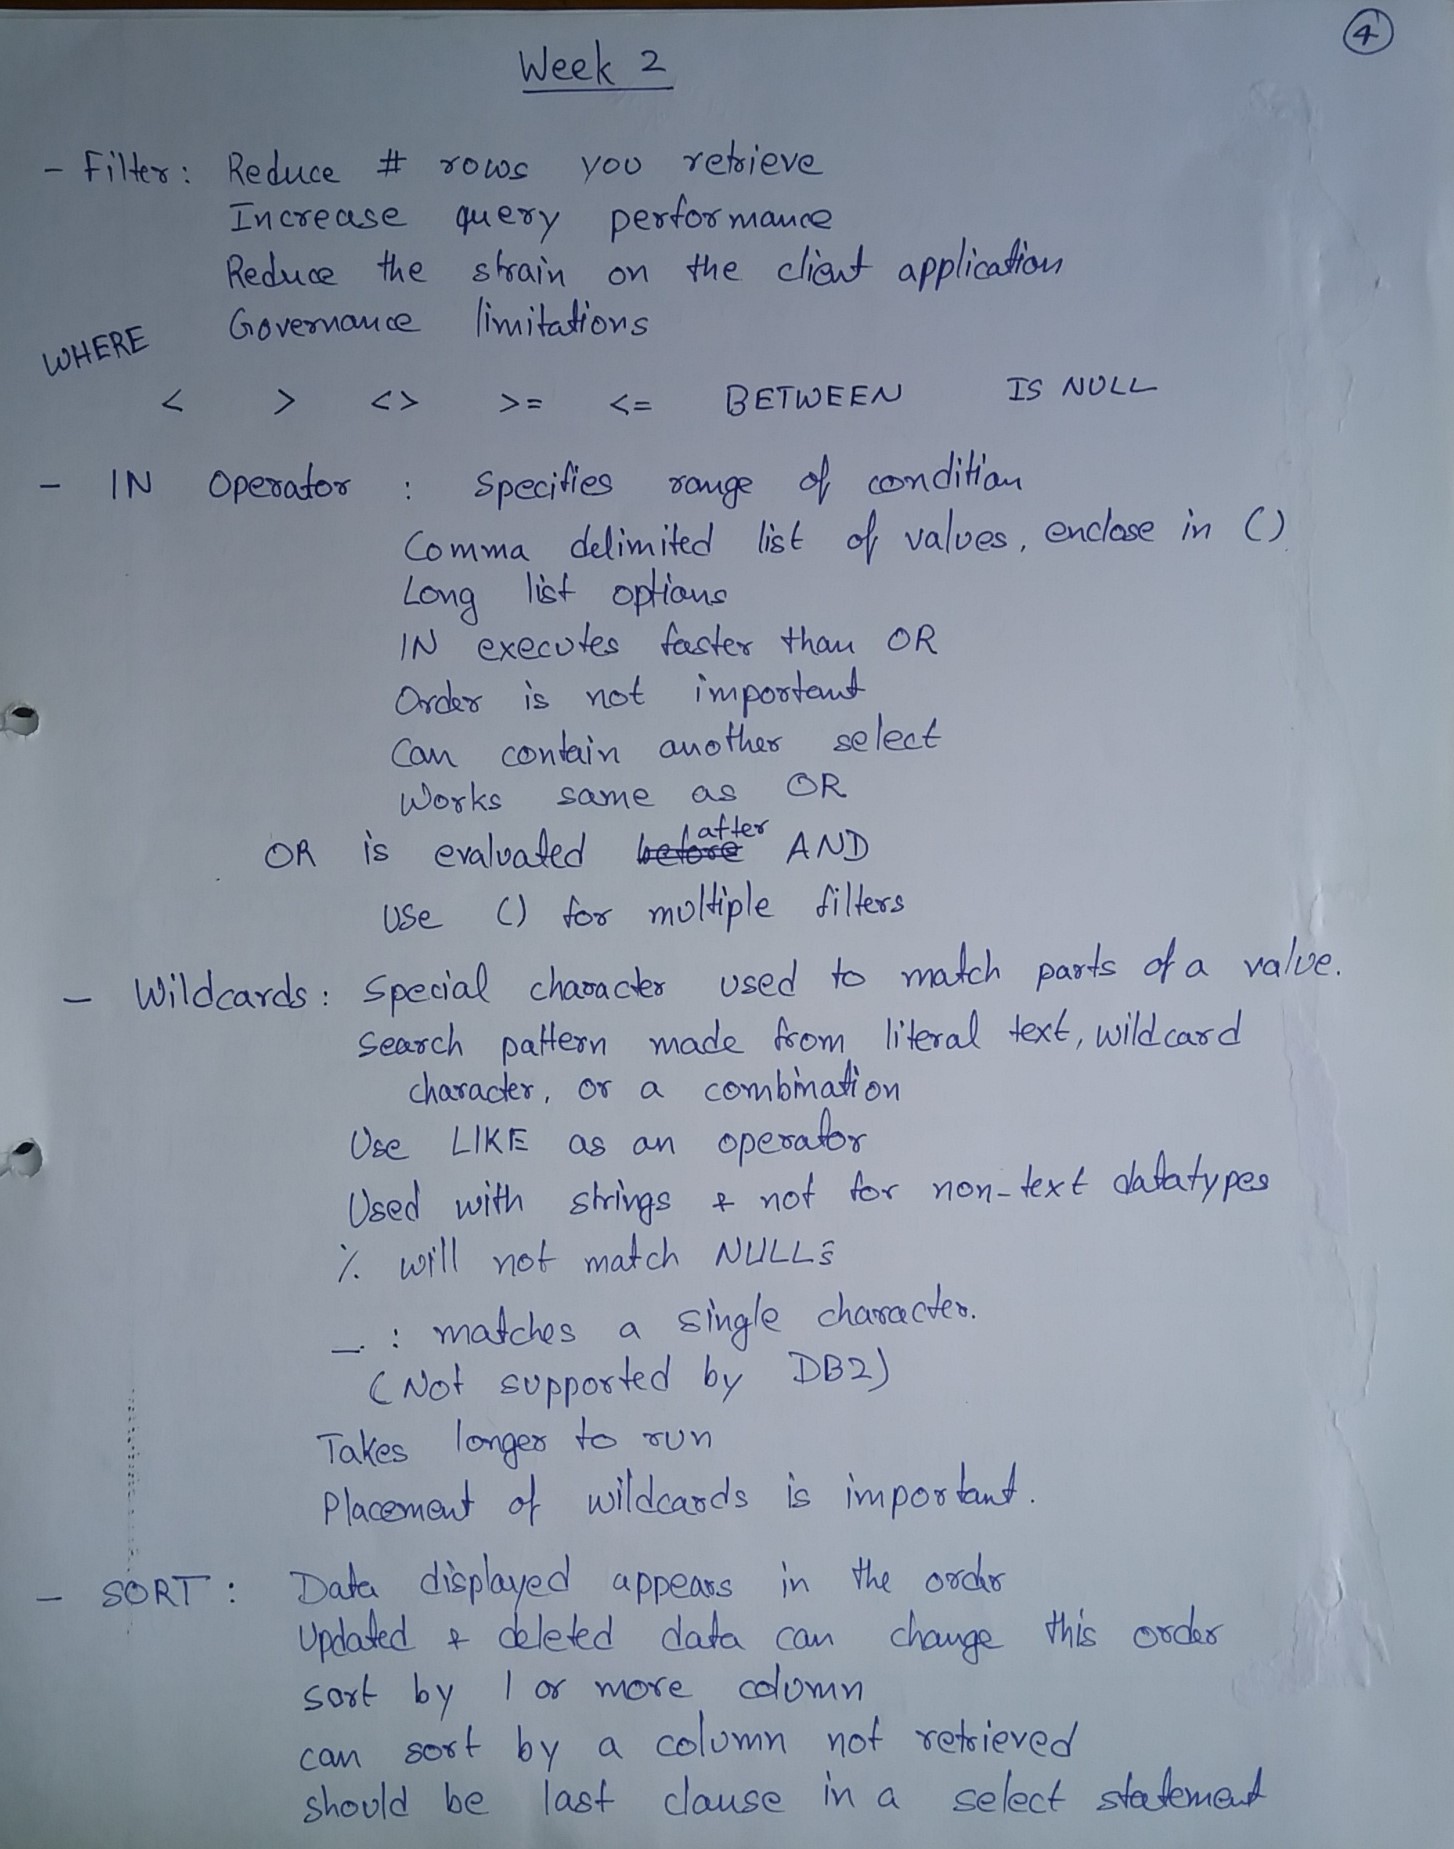 4
Week 2
- Filter: Reduce # rows you retrieve
Increase query performance
Reduce the strain on the client application
Governance limitations
WHERE
< > <> >= <= BETWEEN IS NULL
- IN Operator : Specifies range of condition
Comma delimited list of values, enclose in ()
Long list options
IN executes faster than OR
Order is not important
Can contain another select
Works same as OR
OR is evaluated before after AND
Use () for multiple filters
- Wildcards: Special character used to match parts of a value.
Search pattern made from literal text, wildcard
character, or a combination
Use LIKE as an operator
Used with strings & not for non-text datatypes
% will not match NULLS
_ : matches a single character.
(Not supported by DB2)
Takes longer to run
Placement of wildcards is important.
- SORT: Data displayed appears in the order
Updated & deleted data can change this order
sort by 1 or more column
can sort by a column not retrieved
should be last clause in a select statement